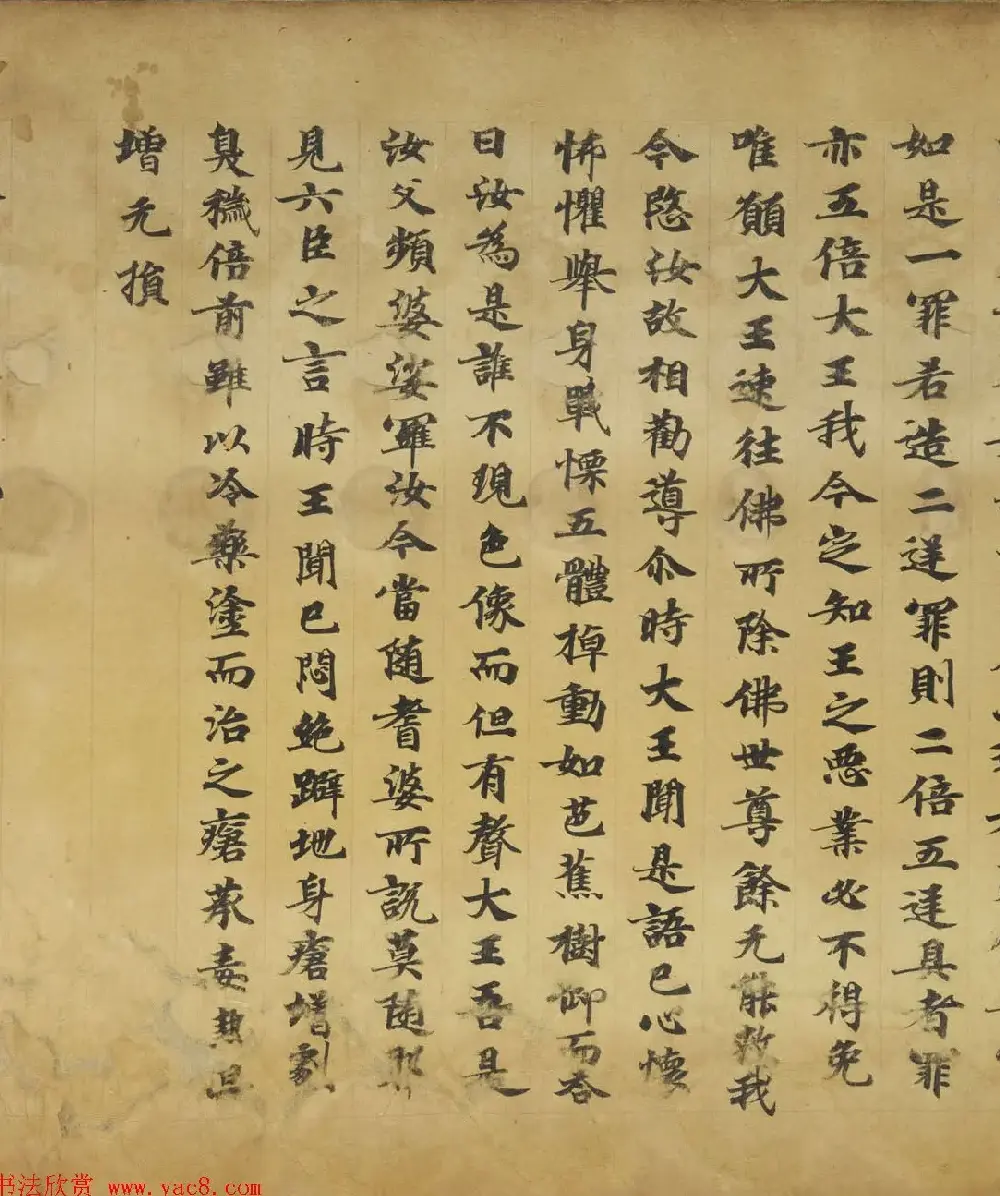 如是一罪若造二逆罪則二倍五逆具者罪
亦五倍大王我今定知王之惡業必不得免
唯願大王速往佛所除佛世尊餘无能救我
今愍汝故相勸導尒時大王聞是語已心懷
怖懼舉身戰慄五體掉動如芭蕉樹仰而荅
曰汝為是誰不現色像而但有聲大王吾是
汝父頻婆娑羅汝今當随耆婆所說莫随耶
見六臣之言時王聞已悶絶躃地身瘡增劇
臭穢倍前雖以冷藥塗而治之瘡蒸毒熱但
增无損
书法欣赏 www.yac8.com